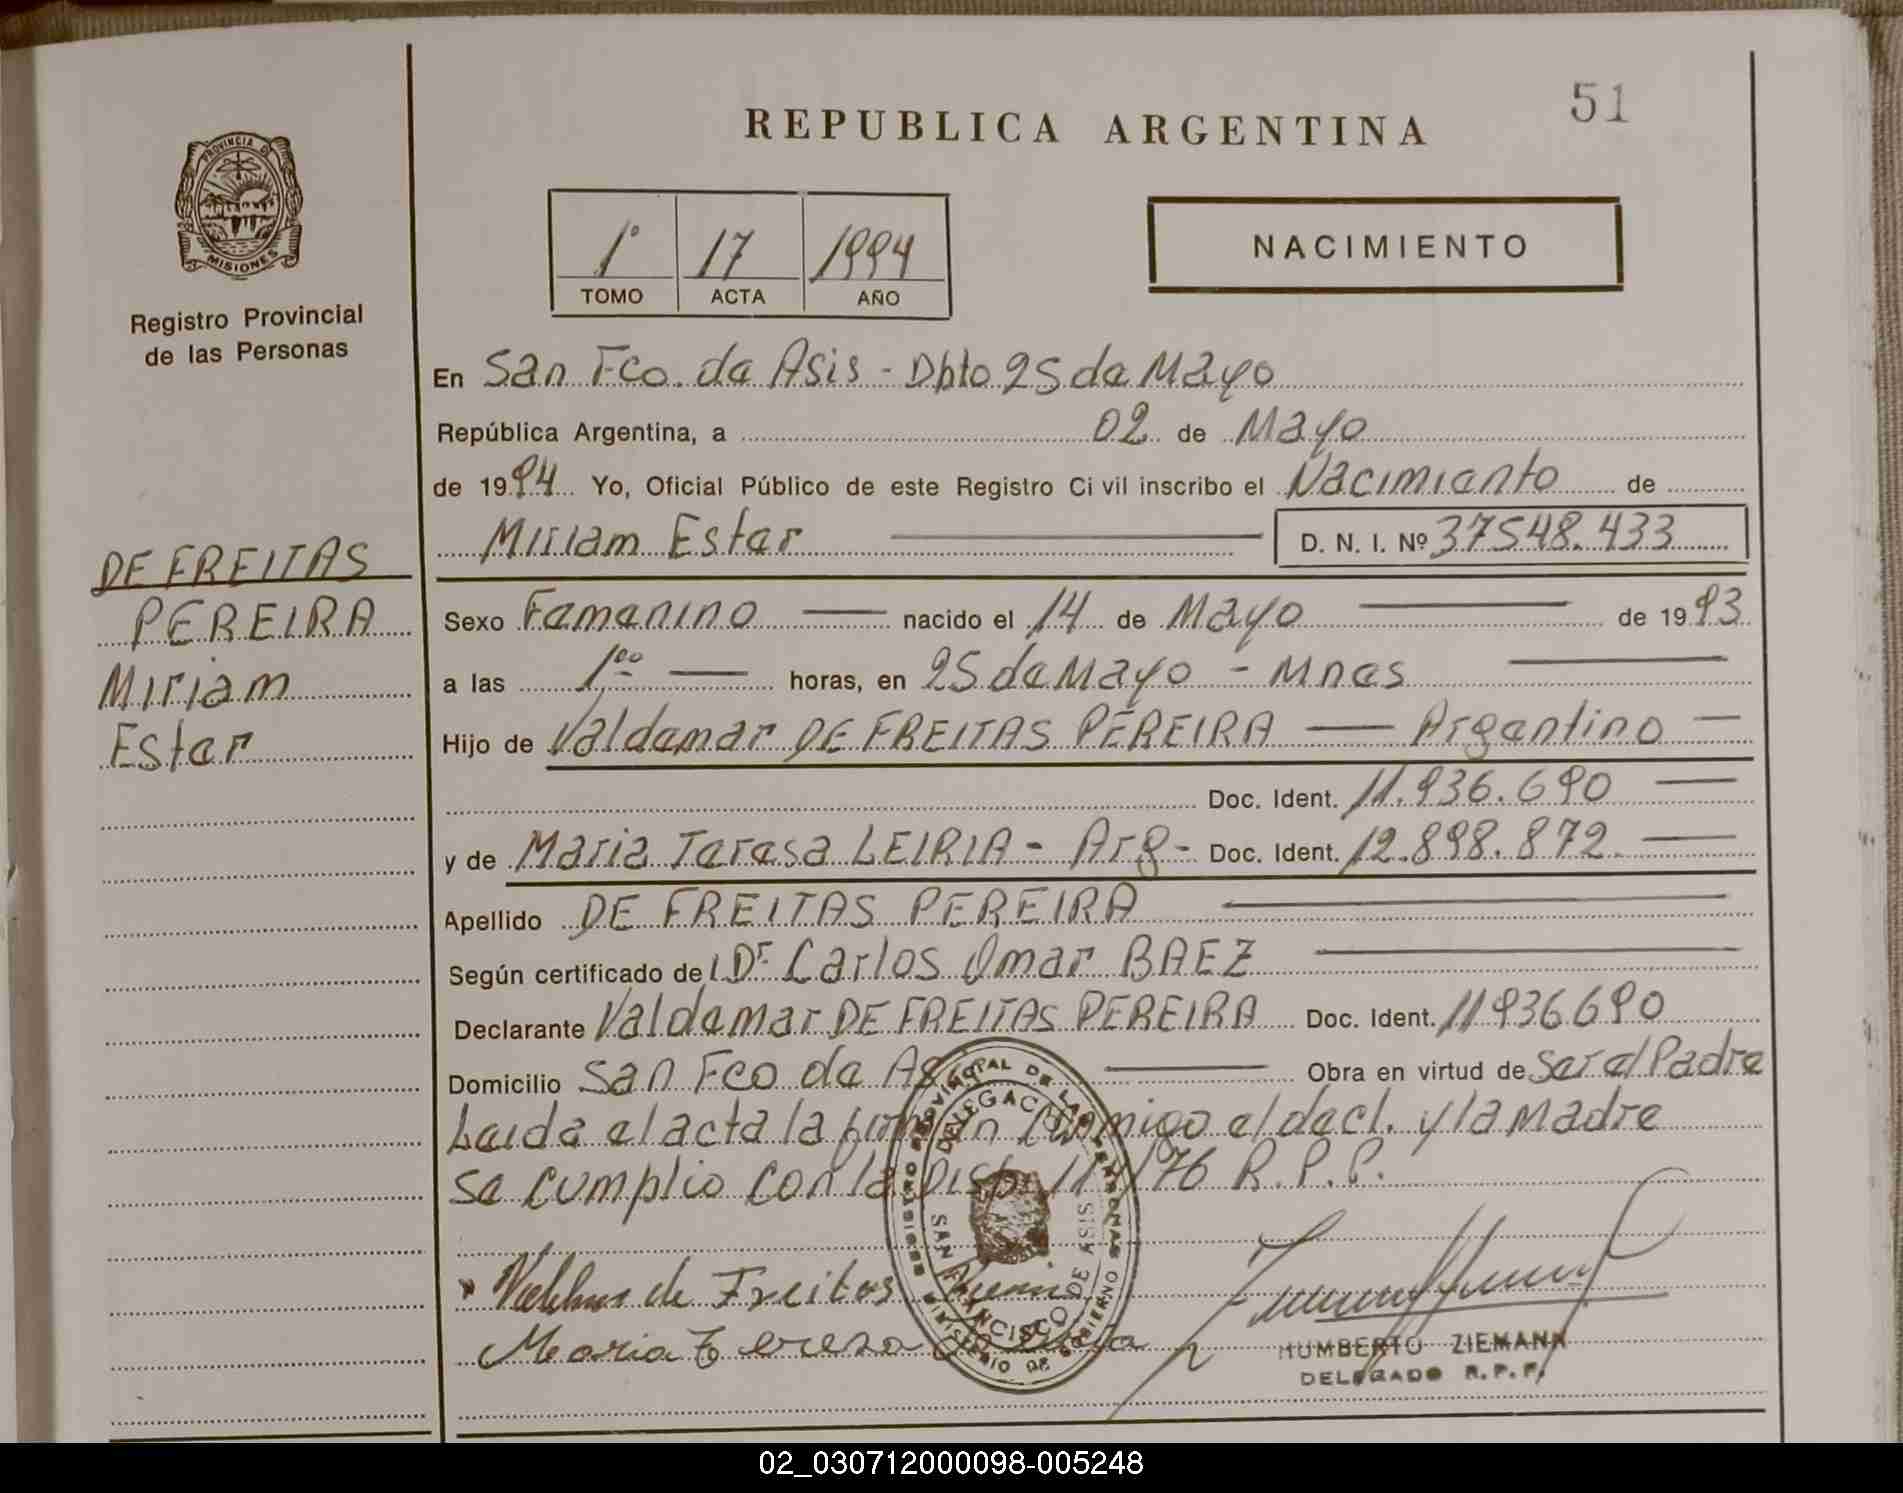 51
REPUBLICA ARGENTINA
PROVINCIA DE
MISIONES
Registro Provincial
de las Personas
1º 17 1994
TOMO ACTA AÑO
NACIMIENTO
En San Fco. de Asis - Dpto 25 de Mayo
República Argentina, a 02 de Mayo
de 1994 Yo, Oficial Público de este Registro Civil inscribo el Nacimiento de
Miriam Ester D. N. I. Nº 37548.433
DE FREITAS
PEREIRA
Miriam
Ester
Sexo Femenino nacido el 14 de Mayo de 1993
a las 1,00 horas, en 25 de Mayo - Mnes
Hijo de Valdemar DE FREITAS PEREIRA Argentino
Doc. Ident. 11.936.690
y de Maria Teresa LEIRIA - Arg - Doc. Ident. 12.898.872
Apellido DE FREITAS PEREIRA
Según certificado del Dr Carlos Omar BAEZ
Declarante Valdemar DE FREITAS PEREIRA Doc. Ident. 11936690
Domicilio San Fco de As Obra en virtud de Ser el Padre
Leida el acta la firman Conmigo el decl. y la Madre
se cumplio con la Disp. 11/76 R.P.P.
REGISTRO PROVINCIAL DE LAS PERSONAS
MINISTERIO DE GOBIERNO
DELEGACION
SAN FRANCISCO DE ASIS
de Freitas
Maria Tereza
HUMBERTO ZIEMANN
DELEGADO R.P.P.
02_030712000098-005248